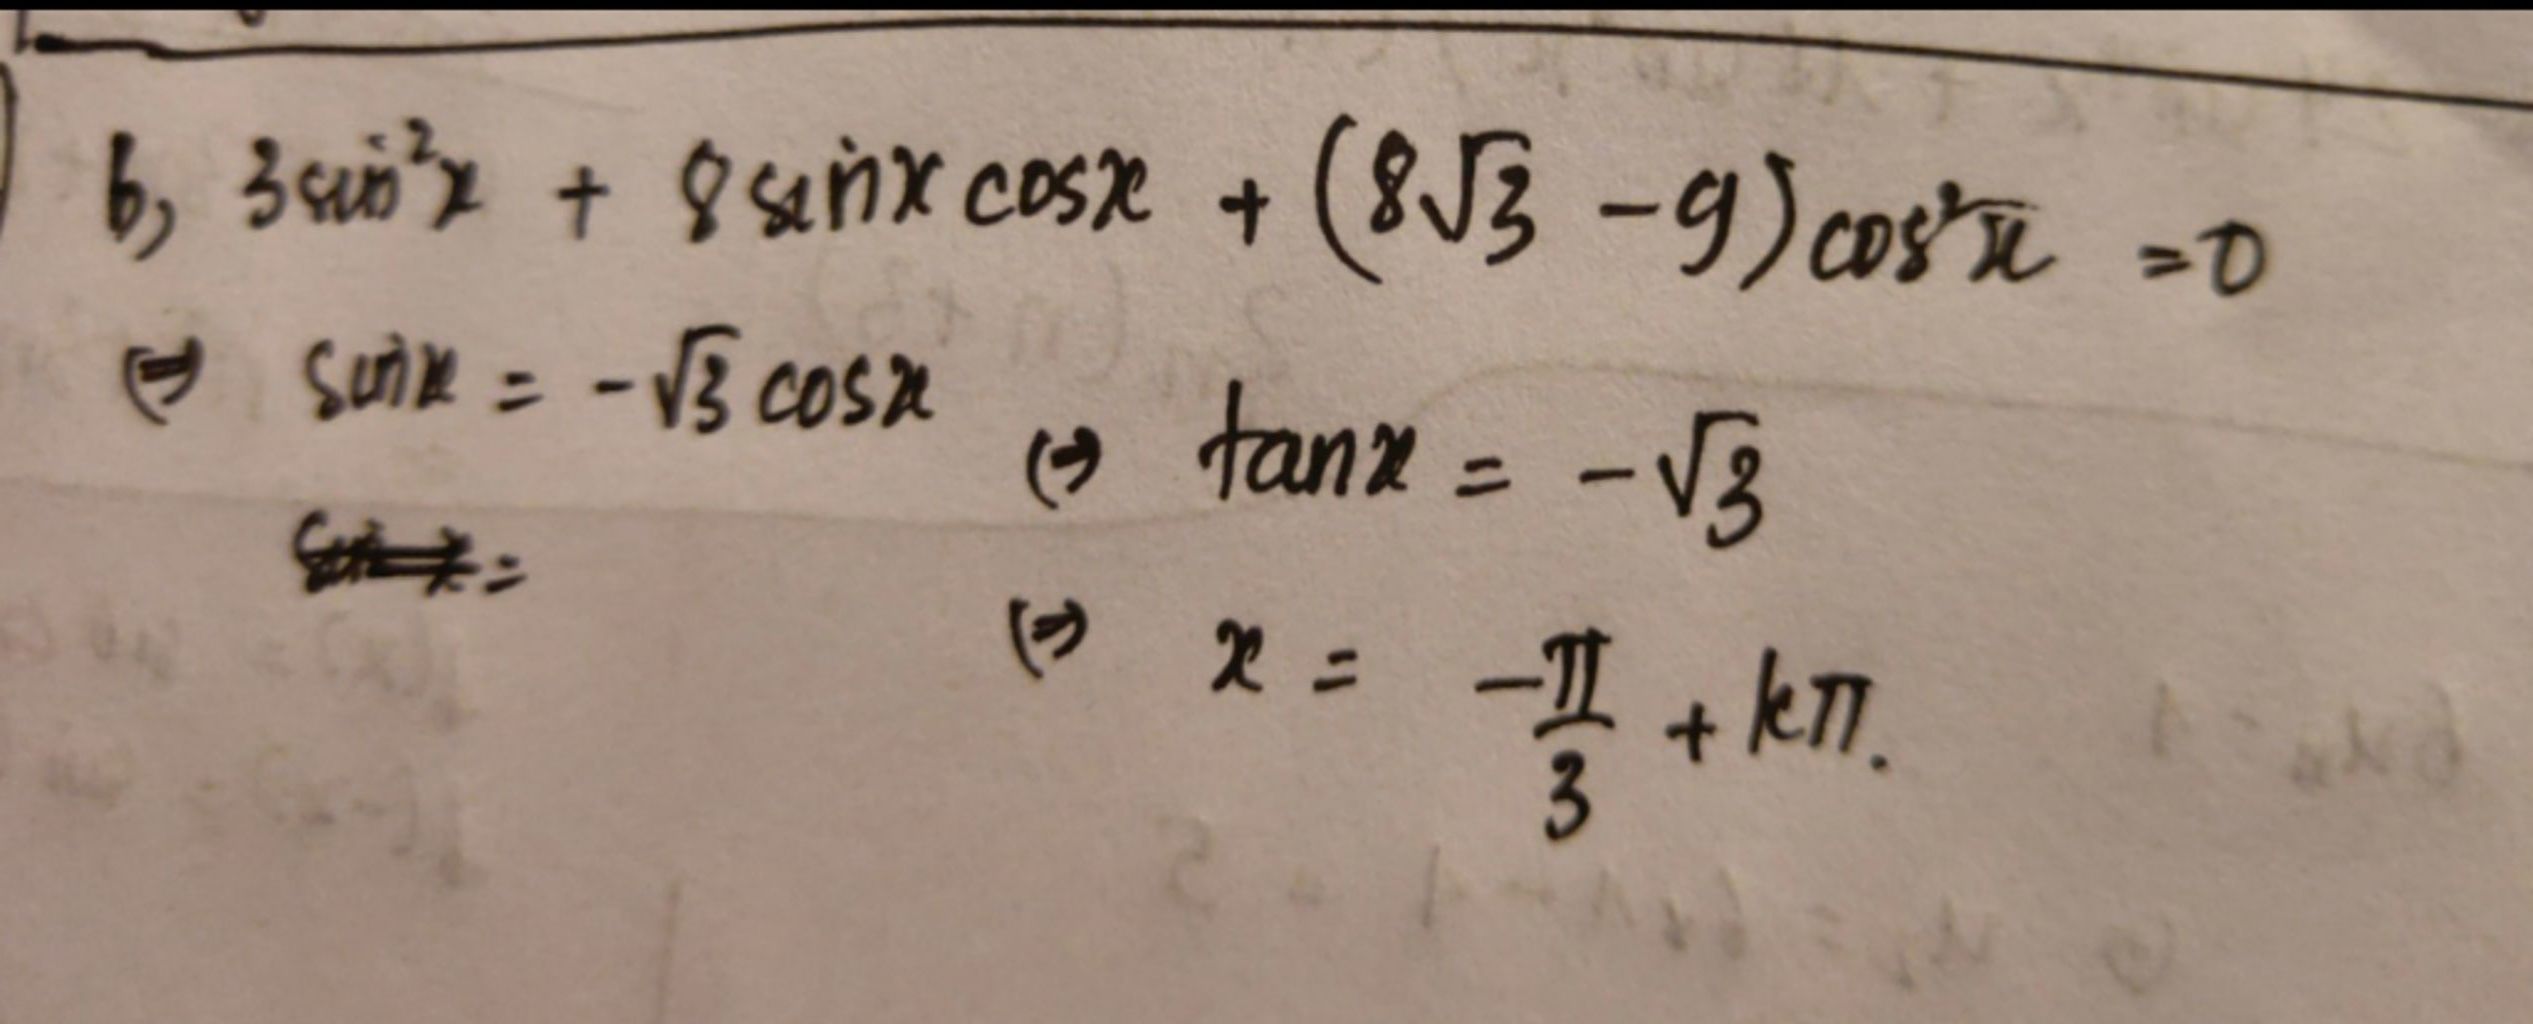 b, 3sin²x + 8sinxcosx + (8√3 - 9)cos²x = 0
⇔ sinx = -√3 cosx
⇔ tanx = -√3
⇔ x = -π/3 + kπ.